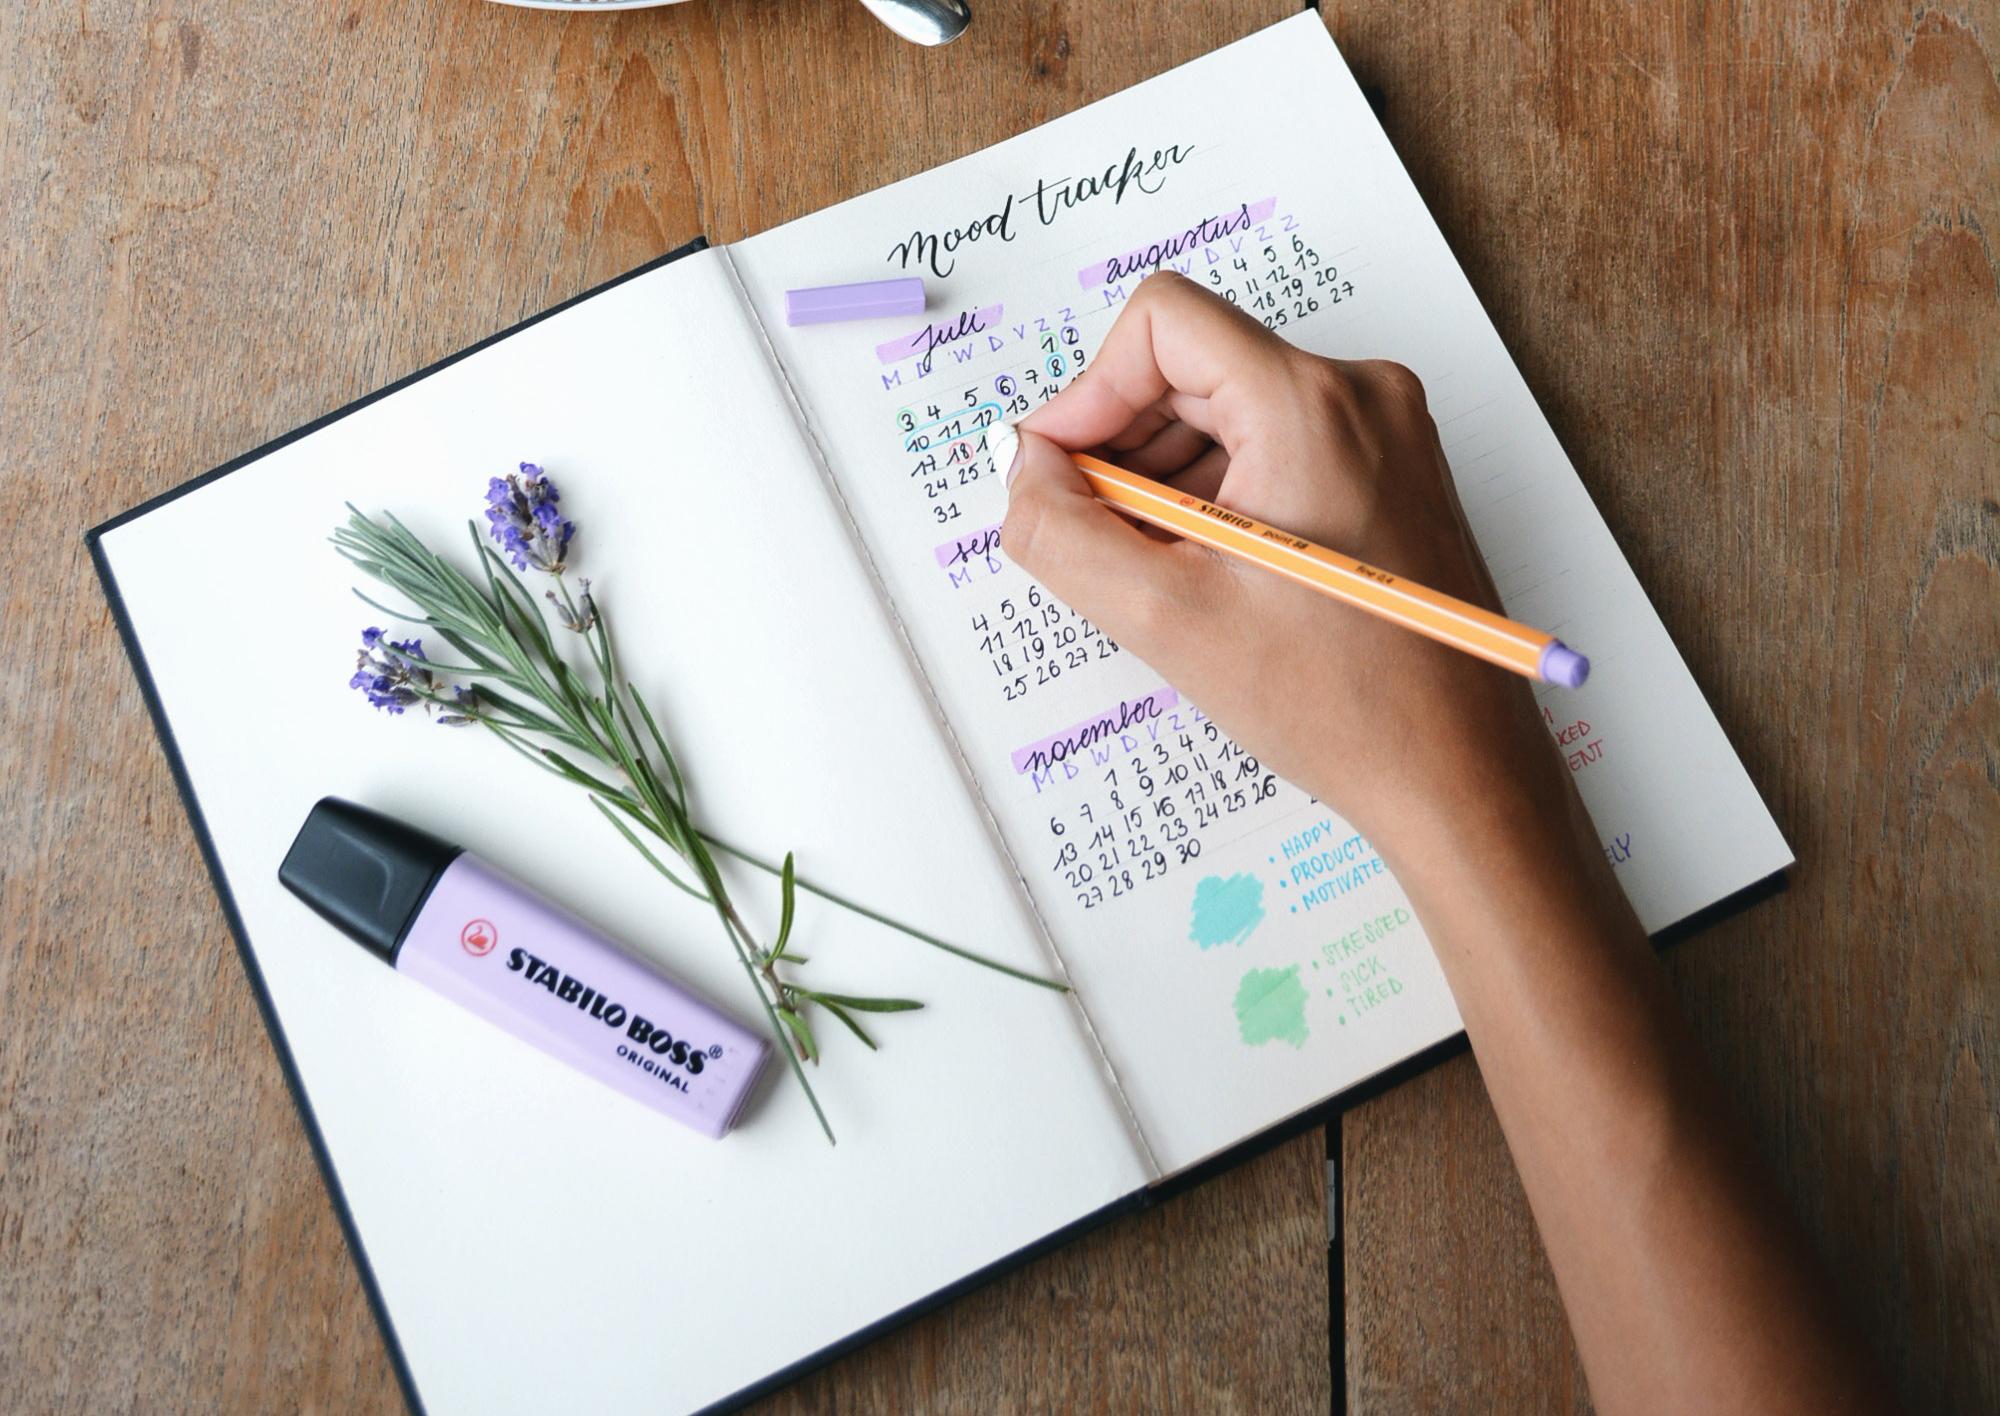 mood tracker
juli
M D W D V Z Z
1 2
3 4 5 6 7 8 9
10 11 12 13 14
17 18
24 25
31
augustus
M W D V Z Z
3 4 5 6
10 11 12 13
18 19 20
25 26 27
M D
4 5 6
11 12 13
18 19 20
25 26 27 28
november
M D W D V Z Z
1 2 3 4 5
6 7 8 9 10 11 12
13 14 15 16 17 18 19
20 21 22 23 24 25 26
27 28 29 30
• HAPPY
• PRODUCT
• MOTIVATE
• STRESSED
• SICK
• TIRED
STABILO point 88 fine 0,4
STABILO BOSS®
ORIGINAL